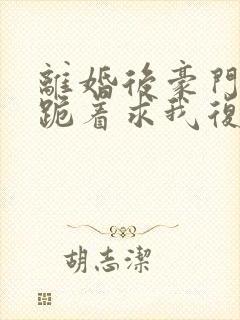 離婚後豪門
跪著求我復
胡志潔